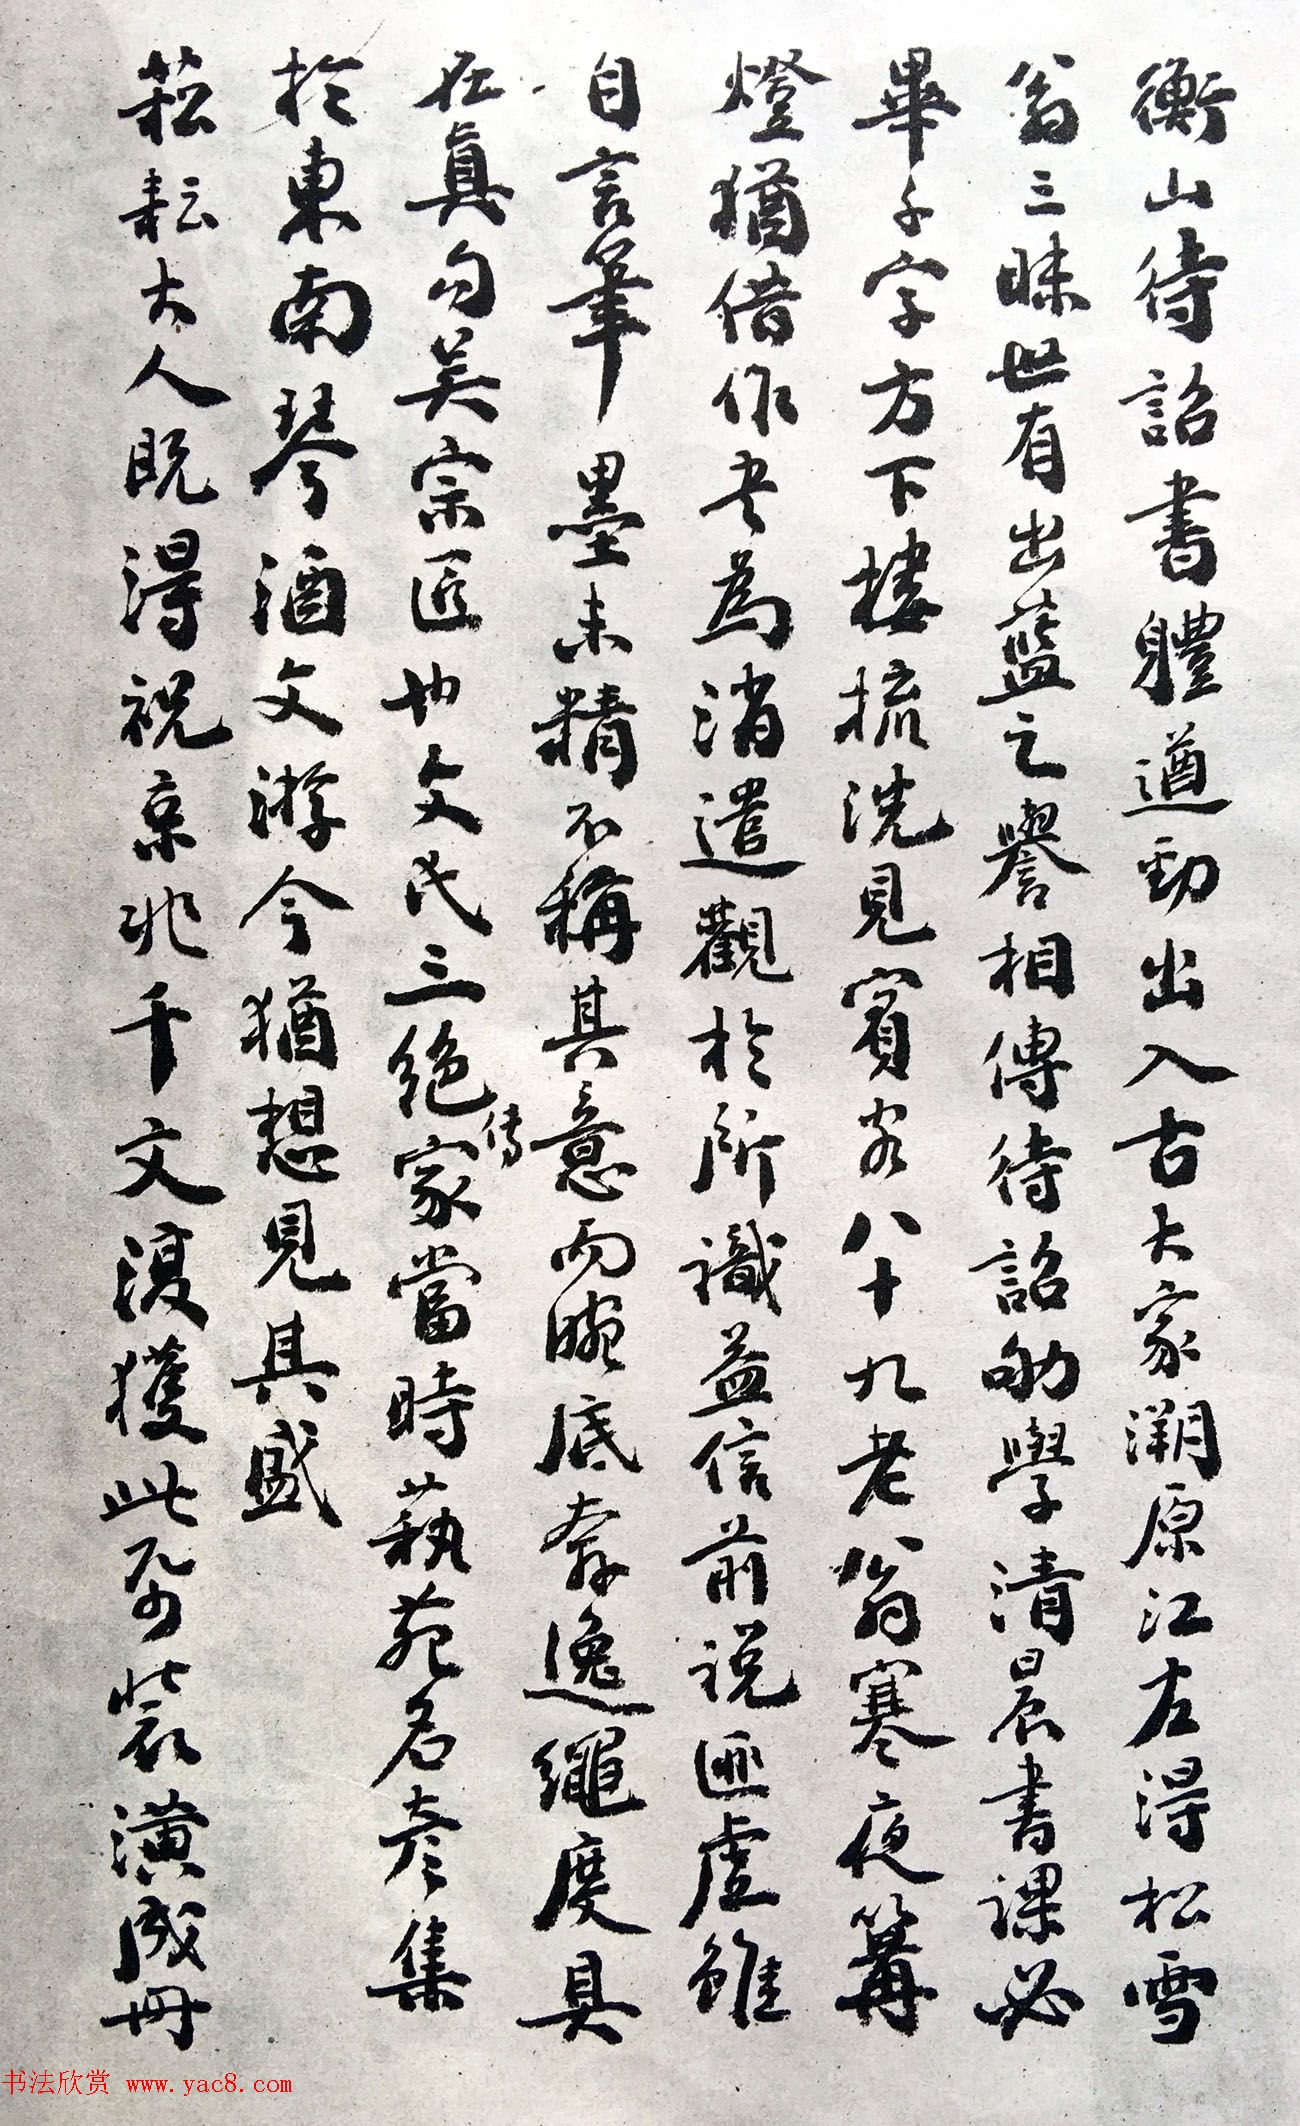 衡山待詔書體遒勁出入古大家溯原江左得松雪
翁三昧世有出藍之譽相傳待詔劬學清晨書課必
畢千字方下樓梳洗見賓客八十九老翁寒夜篝
燈猶借作書為消遣觀於所識益信前說匪虛雖
自言筆墨未精不稱其意而腕底奔逸繩度具
在真勾吴宗匠也文氏三絕傳家當時藝苑名彥集
於東南琴酒文游今猶想見其盛
菘耘大人既得祝京兆千文復獲此帋裝潢成冊
书法欣赏 www.yac8.com